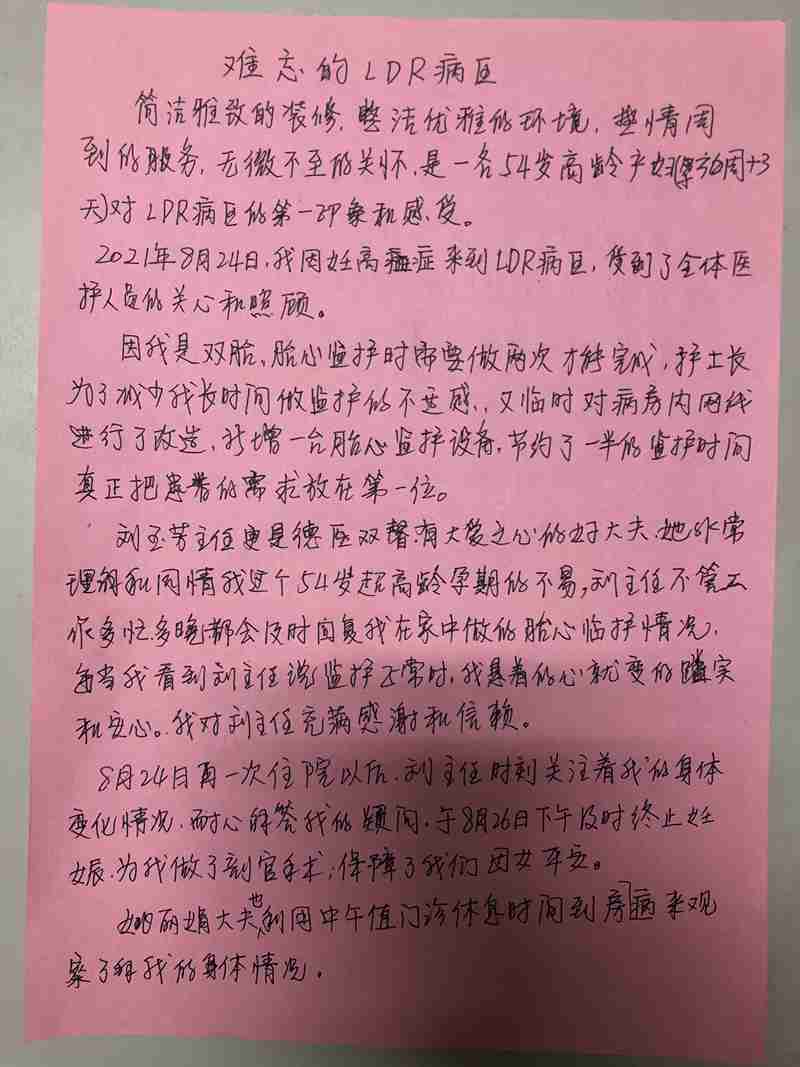 难忘的LDR病区
简洁雅致的装修,整洁优雅的环境,热情周
到的服务,无微不至的关怀,是一名54岁高龄产妇(孕36周+3
天)对LDR病区的第一印象和感受。
2021年8月24日,我因妊高症来到LDR病区,受到了全体医
护人员的关心和照顾。
因我是双胎、胎心监护时需要做两次才能完成,护士长
为了减少我长时间做监护的不适感,又临时对病房内网线
进行了改造,新增一台胎心监护设备,节约了一半的监护时间
真正把患者的需求放在第一位。
刘玉芳主任更是德医双馨有大爱之心的好大夫,她非常
理解和同情我这个54岁超高龄孕期的不易,刘主任不管工
作多忙、多晚都会及时回复我在家中做的胎心临护情况,
每当我看到刘主任说监护正常时,我悬着的心就变的踏实
和安心。我对刘主任充满感谢和信赖。
8月24日再一次住院以后,刘主任时刻关注着我的身体
变化情况,耐心解答我的疑问,于8月26日下午及时终止妊
娠,为我做了剖宫手术,保障了我们母女平安。
丽娟大夫也利用中午值门诊休息时间到房病来观
察了解我的身体情况。